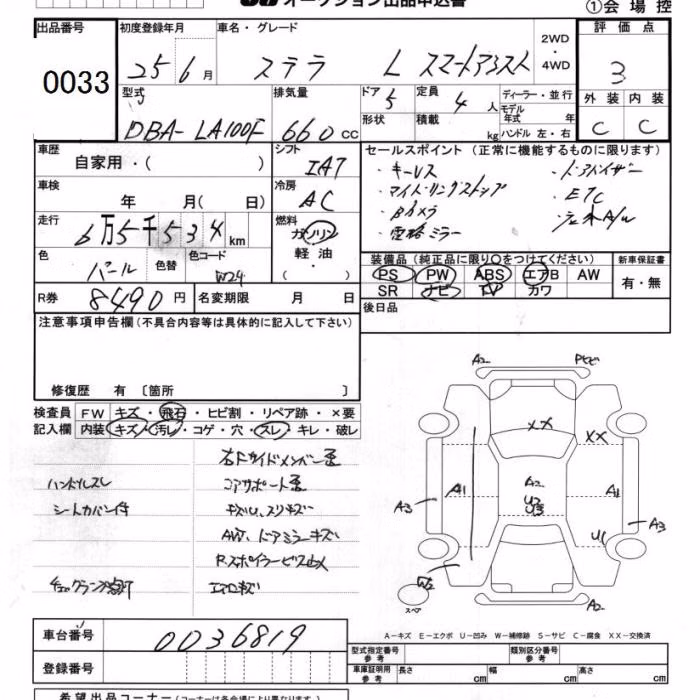 オークション出品申込書
①会場控
出品番号 初度登録年月 車名・グレード 2WD・4WD 評価点
0033 25年6月 ステラ L スマートアシスト 3
型式 排気量 ドア 定員 ディーラー・並行 外装 内装
DBA-LA100F 660cc 5 4人 モデル年式 年 C C
形状 積載 kg ハンドル 左・右
車歴 シフト セールスポイント(正常に機能するものに限ります)
自家用・( ) IAT ・キーレス ・ドアバイザー
車検 冷房 ・マイドリングストップ ・ETC
年 月( 日) AC ・Bカメラ ・社外A/W
走行 燃料 ・電格ミラー
6万5千534km ガソリン
軽油
( ・ )
色 色替 色コード 装備品(純正品に限り○をつけてください) 新車保証書
パール W24 PS PW ABS エアB AW 有・無
SR ナビ TV カワ
R券 8490円 名変期限 月 日 後日品
注意事項申告欄(不具合内容等は具体的に記入して下さい)
修復歴 有 〔箇所 〕
検査員 FW キズ・飛石・ヒビ割・リペア跡・×要
記入欄 内装 キズ・汚レ・コゲ・穴・スレ・キレ・破レ
右Fサイドメンバー歪
ハンドルスレ コアサポート歪
シートカバー付 キズU、スリキズ
AW、ドアミラーキズ
Rスポイラービス止メ
チェックランプ点灯 エアロキズ
A2 Pヒビ
XX XX
A3 A1 A2 U2 U3 A1 A3
W2 U1
スペア A2
A-キズ E-エクボ U-凹み W-補修跡 S-サビ C-腐食 XX-交換済
車台番号 0036819
型式指定番号 参考 類別区分番号 参考
登録番号 車庫証明用 参考 長さ cm 幅 cm 高さ cm
希望出品コーナー(コーナーは会場により異なります。)